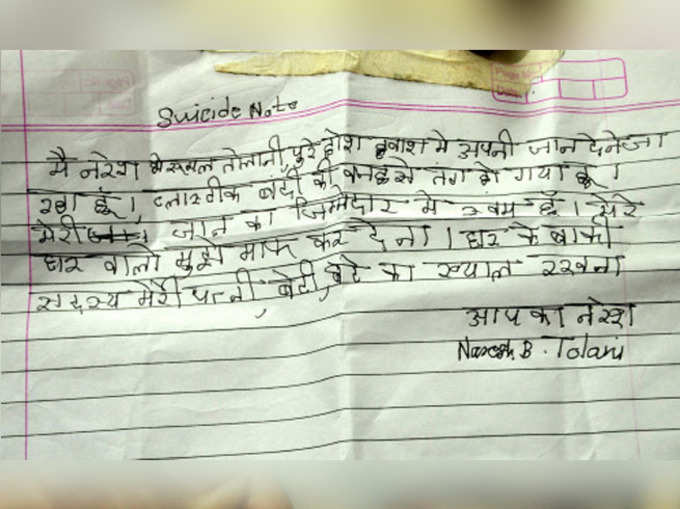 Suicide Note
मै नरेश भेरूमल तोलानी, पुरे होश हवाश मे अपनी जान देनेजा
रहा हूं। प्लास्टीक बंदी की वजहसे तंग हो गया हूं।
मेरी जान का जिम्मेदार मे स्वयम हूँ। मेरे
घर वालो मुझे माफ कर देना। घर के बाकी
सदस्य मेरी पत्नी, बेटी, बेटे का ख्याल रखना
आप का नरेश
Naresh B. Tolani